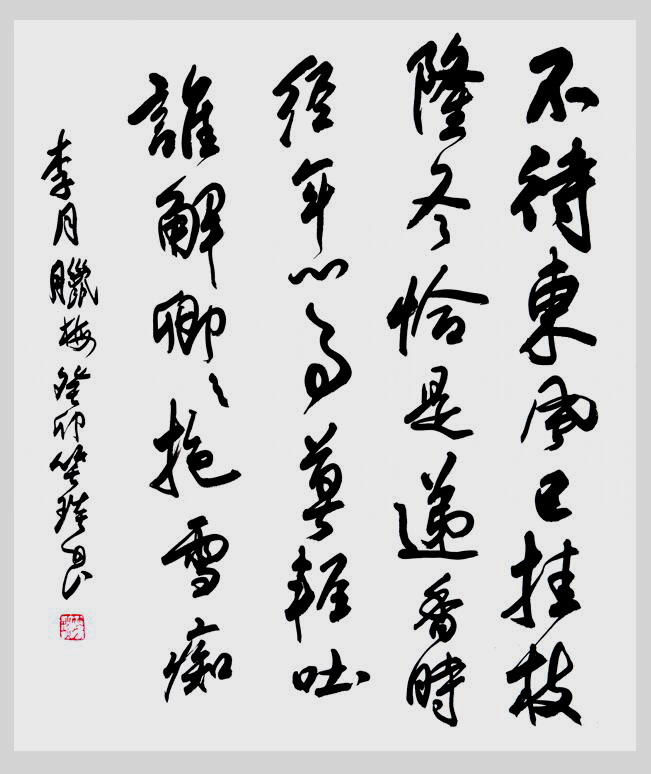 不待東風已挂枝
隆冬恰是递香時
経年心事莫輕吐
誰解卿〻抱雪痴
李月臘梅癸卯